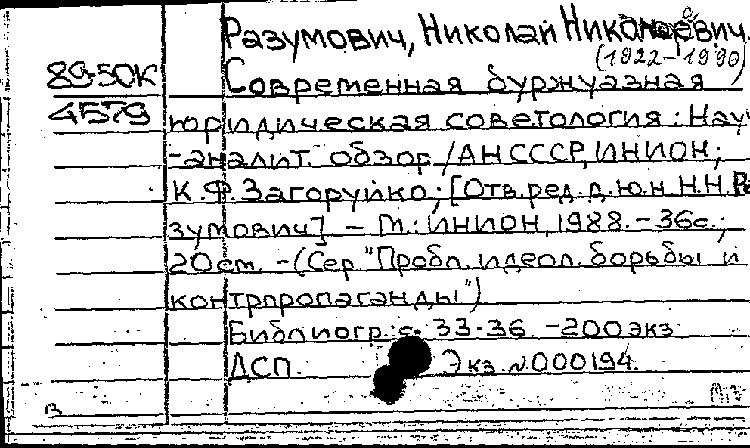 Разумович, Николай Николаевич.
(1922-1990)
89-50К Современная буржуазная
4579 юридическая советология: Науч
-аналит. обзор /АН СССР, ИНИОН;
К.Ф. Загоруйко; [Отв. ред. д.ю.н. Н.Н. Ра
зумович] – М.: ИНИОН, 1988. – 36с.;
20см. – (Сер "Пробл. идеол. борьбы и
контрпропаганды")
Библиогр: с. 33-36 – 200 экз
ДСП. Экз №000194.